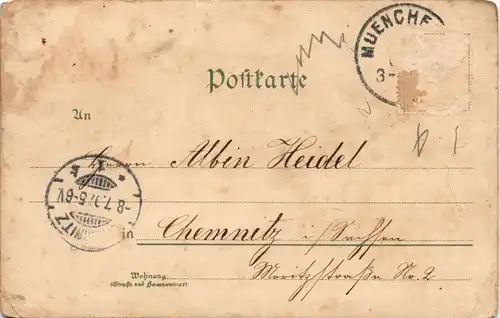 MUENCHE
3-
Postkarte
An
Herrn Albin Heidel
-8.7. 5-6V.
NITZ
in Chemnitz i/Sachsen
Moritzstraße Nr. 2
Wohnung
(Straße und Hausnummer)